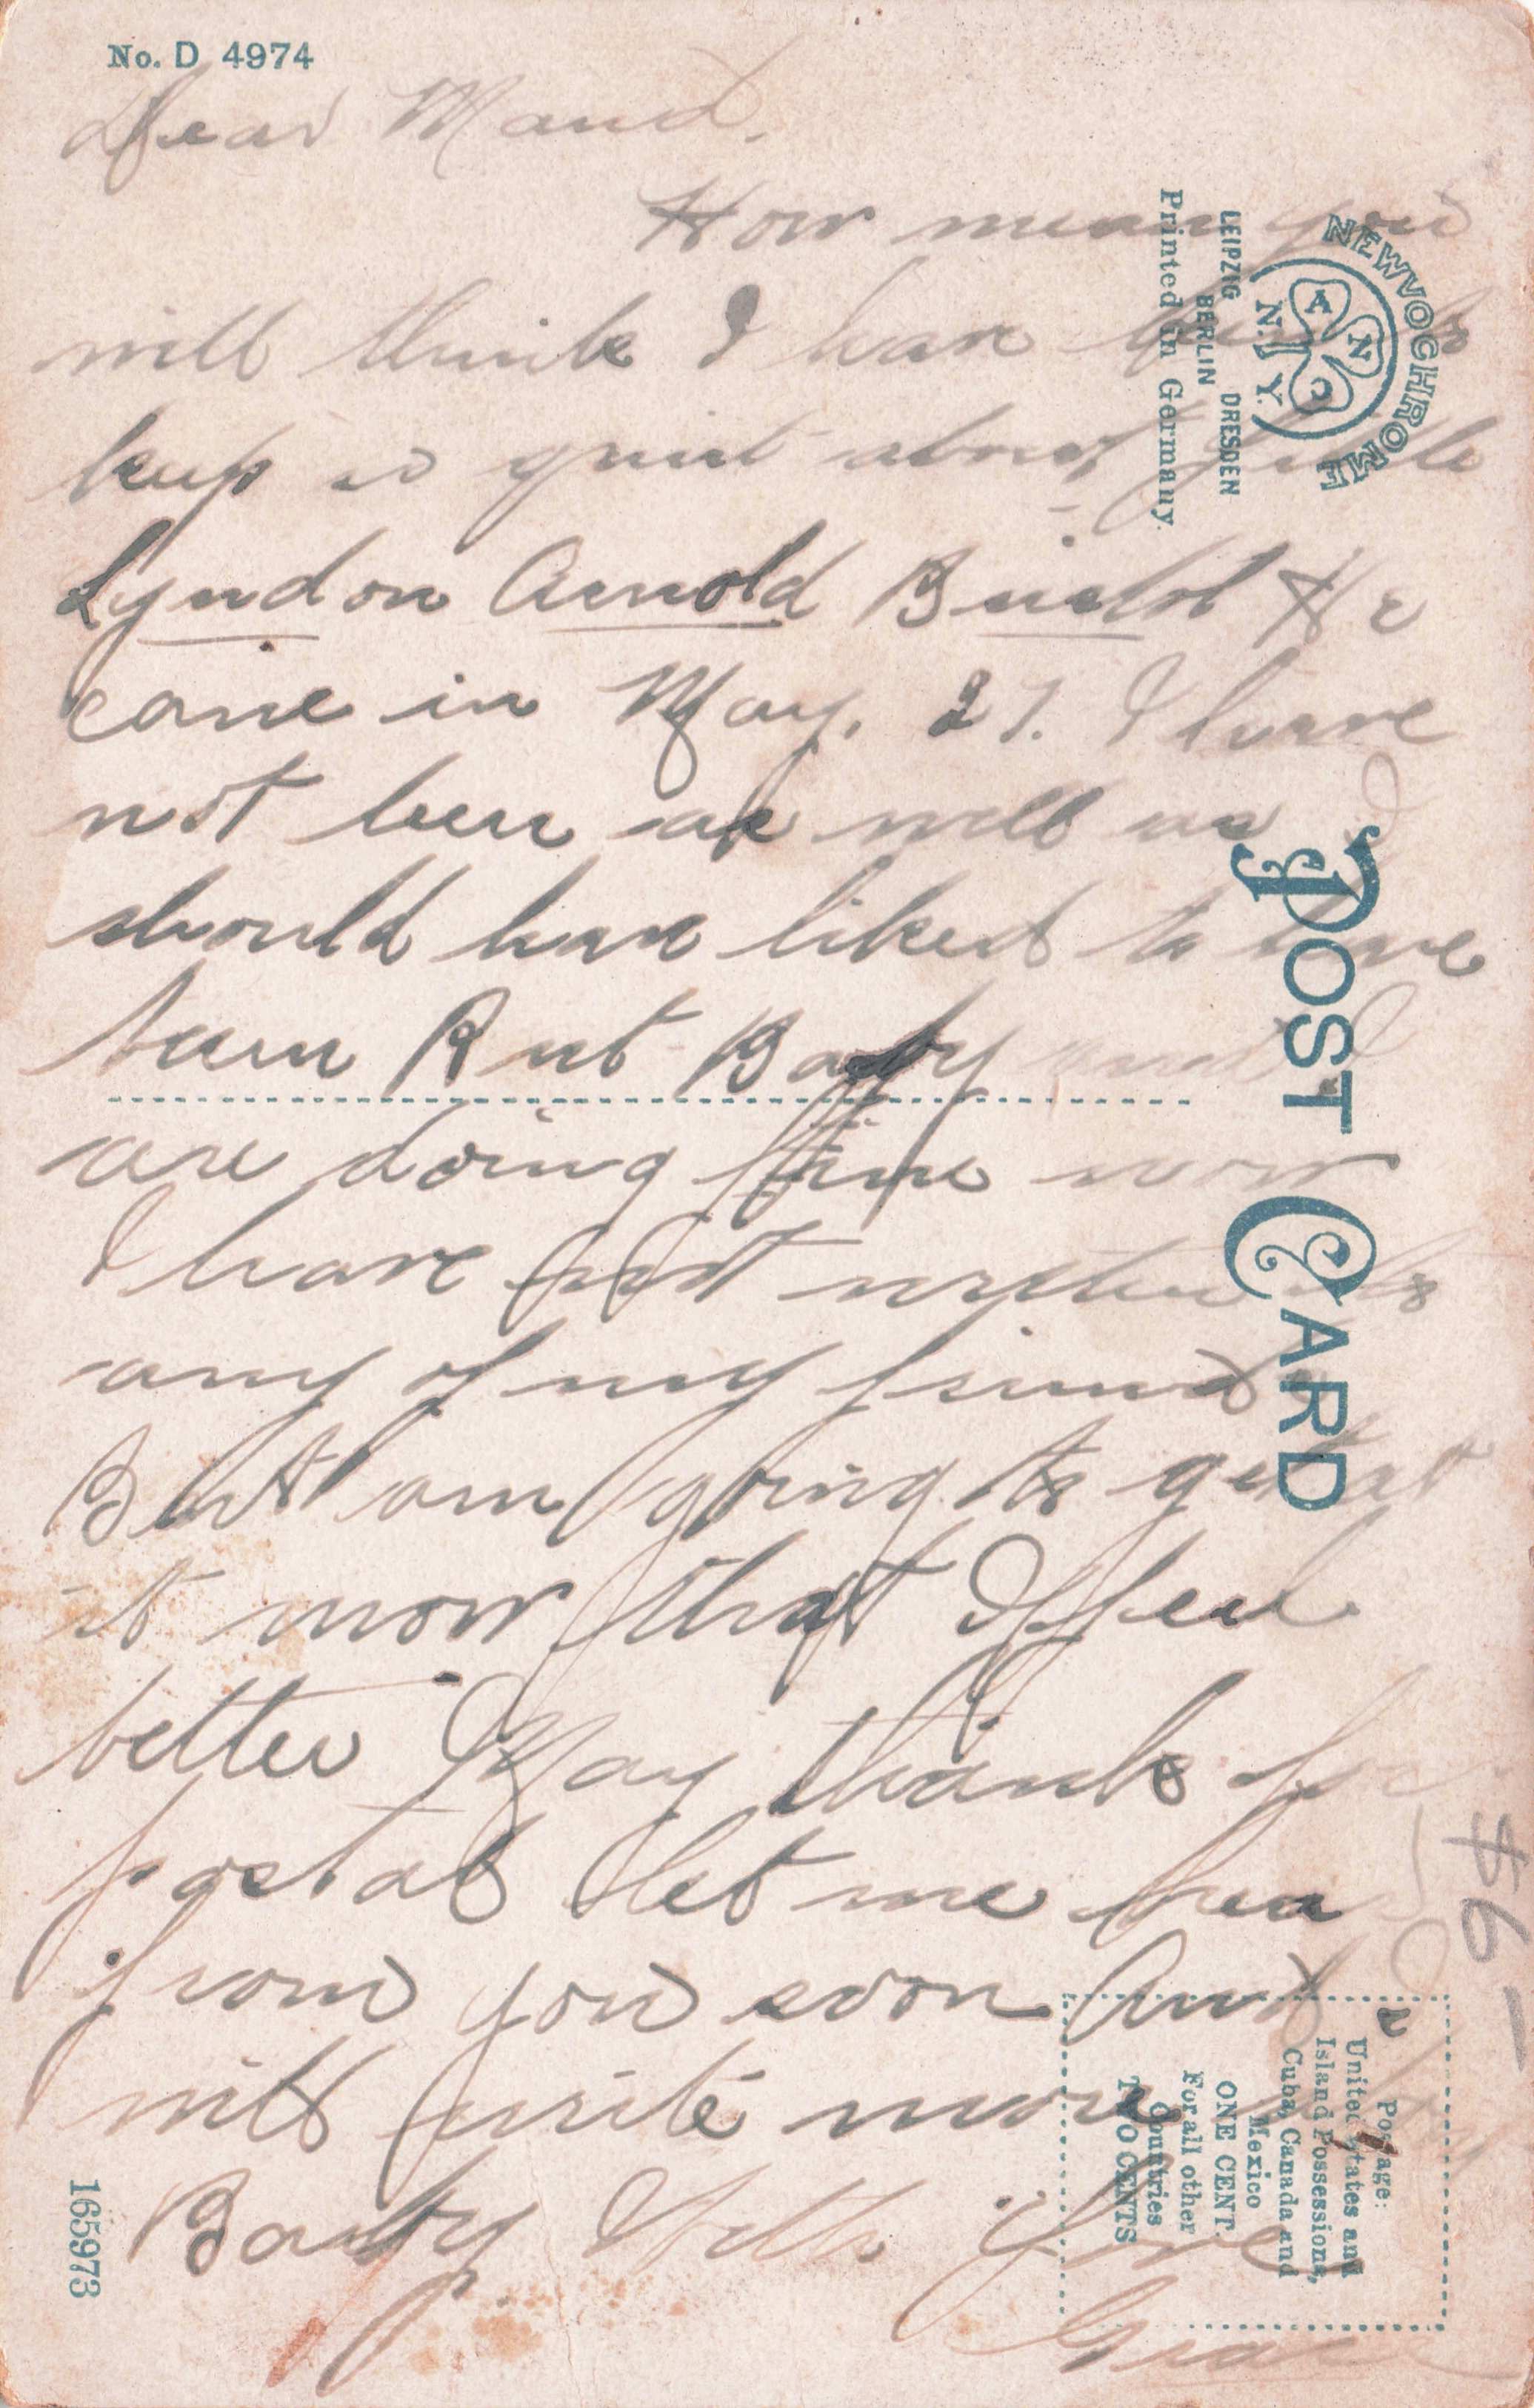 No. D 4974
Dear Maud.
How mean you
will think I have been to
keep so quiet about little
Lyndon Arnold He
came in May. 27. I have
not been as well as I
should have liked to have
been But Baby and I
are doing fine now
I have not written to
any of my friends
But am going to get at
it now that I feel
better May thanks for
postal let me hear
from you soon And I
will write more
Baby Love
Grace
NEWVOCHROME
A N C
N. Y.
LEIPZIG DRESDEN
BERLIN
Printed in Germany.
POST CARD
$6-
Postage:
United States and
Island Possessions,
Cuba, Canada and
Mexico
ONE CENT.
For all other
Countries
TWO CENTS
165973